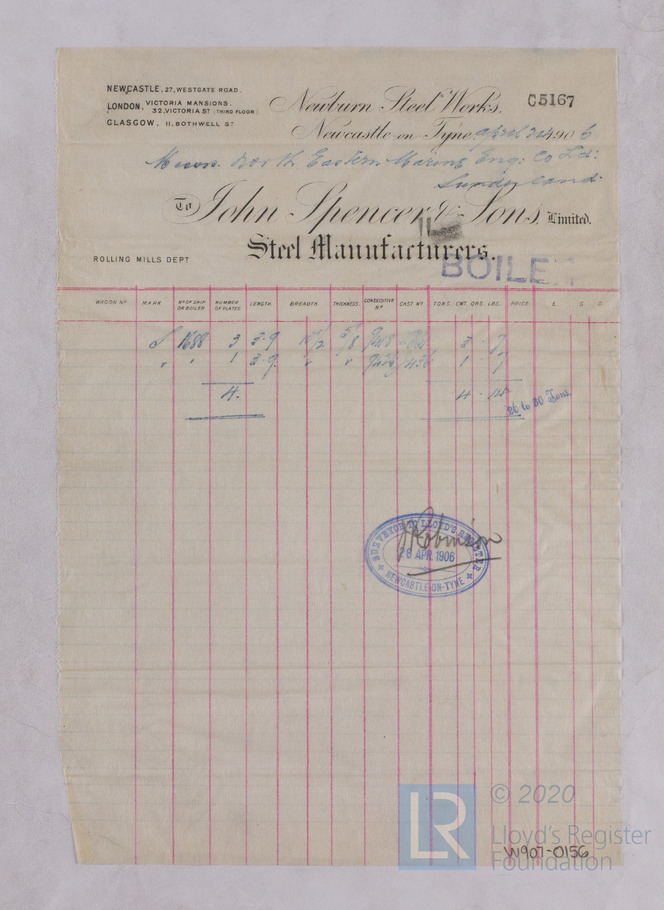 NEWCASTLE, 27, WESTGATE ROAD.
LONDON, VICTORIA MANSIONS, 32, VICTORIA ST (THIRD FLOOR)
GLASGOW, 11, BOTHWELL ST
Newburn Steel Works,
C5167
Newcastle-on-Tyne, April 24 1906
Messrs. North Eastern Marine Eng: Co Ltd:
Sunderland.
To John Spencer & Sons, Limited.
Steel Manufacturers.
BOILE
ROLLING MILLS DEPT
WAGON No MARK No OF SHIP OR BOILER NUMBER OF PLATES LENGTH. BREADTH. THICKNESS. CONSECUTIVE No CAST No TONS. CWT. QRS. LBS. PRICE. £ S D
1688 3 3.9 5/8 3
" " 1 3.9 " " 1
4. 4
26 to 30 Tons.
SURVEYOR TO LLOYD'S REGISTER
Robinson
28 APR. 1906
NEWCASTLE-ON-TYNE
LR
© 2020
Lloyd's Register
Foundation
W907-0156